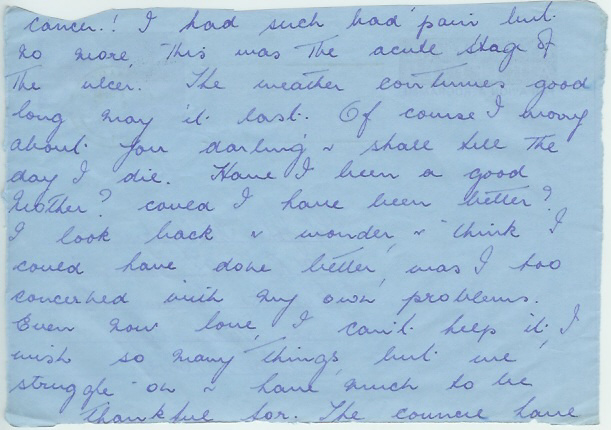 cancer.! I had such bad pain but
no more, this was the acute stage of
the ulcer. The weather continues good
long may it last. Of course I worry
about you darling & shall till the
day I die. Have I been a good
Mother? could I have been better?
I look back & wonder, & think I
could have done better, was I too
concerned with my own problems.
Even now love, I can't help it. I
wish so many things but we
struggle on & have much to be
thankful for. The council have